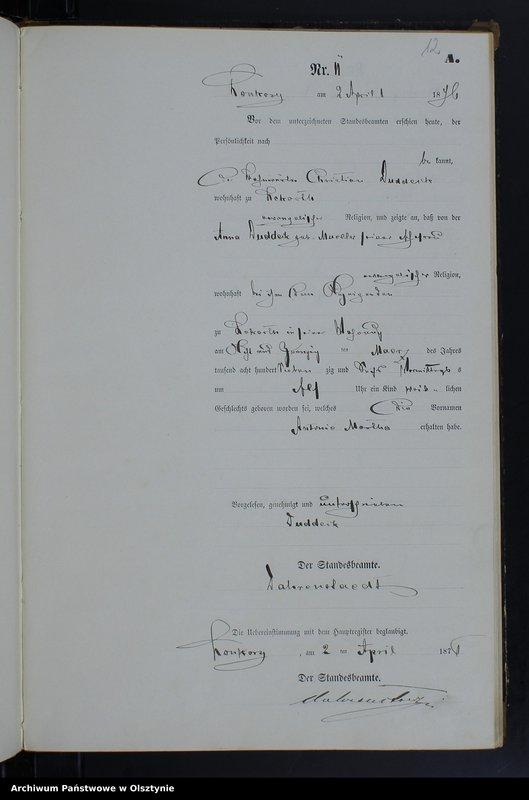 12
A.
Nr. 11
Konkory am 2 April 1876
Vor dem unterzeichneten Standesbeamten erschien heute, der
Persönlichkeit nach
be kannt,
der Christian Duddeck
wohnhaft zu
evangelischer Religion, und zeigte an, daß von der
Anna Duddeck geb. seiner Ehefrau
evangelischer Religion,
wohnhaft bei ihm dem
zu in seiner Wohnung
am Acht und Zwanzig ten Maerz des Jahres
tausend acht hundert sieben zig und Sechs Vormittags s
um Elf Uhr ein Kind weib lichen
Geschlechts geboren worden sei, welches die Vornamen
Antonie Martha erhalten habe.
Vorgelesen, genehmigt und unterschrieben
Duddeck
Der Standesbeamte.
Die Uebereinstimmung mit dem Hauptregister beglaubigt.
Konkory, am 2 ten April 1876
Der Standesbeamte.
Archiwum Państwowe w Olsztynie